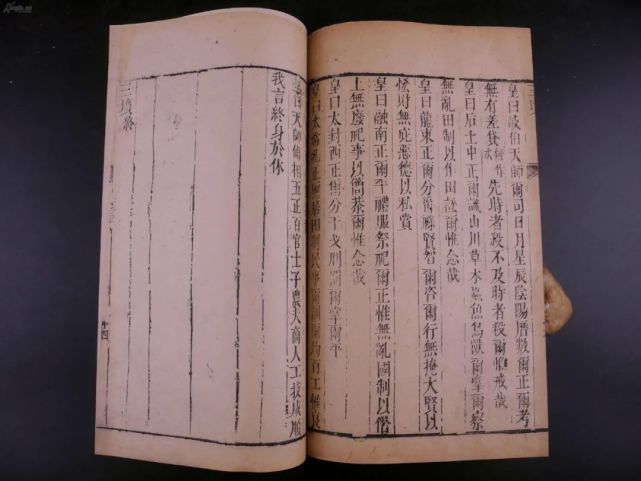 皇曰岐伯天師爾司日月星辰陰陽厯數爾正爾考
無有差貸先時者殺不及時者殺爾惟戒哉
皇曰后土中正爾識山川草木蟲魚鳥獸爾掌爾察
無亂田制以作田訟爾惟念哉
皇曰龍東正爾分爵祿賢智爾咨爾行無掩大賢以
恡財無庇惡德以私賞
皇曰融南正爾平禮服祭祀爾正惟無亂國制以僭
上無廢祀事以簡恭爾惟念哉
皇曰太封西正爾分干戈刑罰爾掌爾平
皇曰太常北正爾居田制民事爾訓爾均百工惟良
皇曰天師輔相五正百官士子農夫商人工技咸順
我言終身於休
三墳終
十四